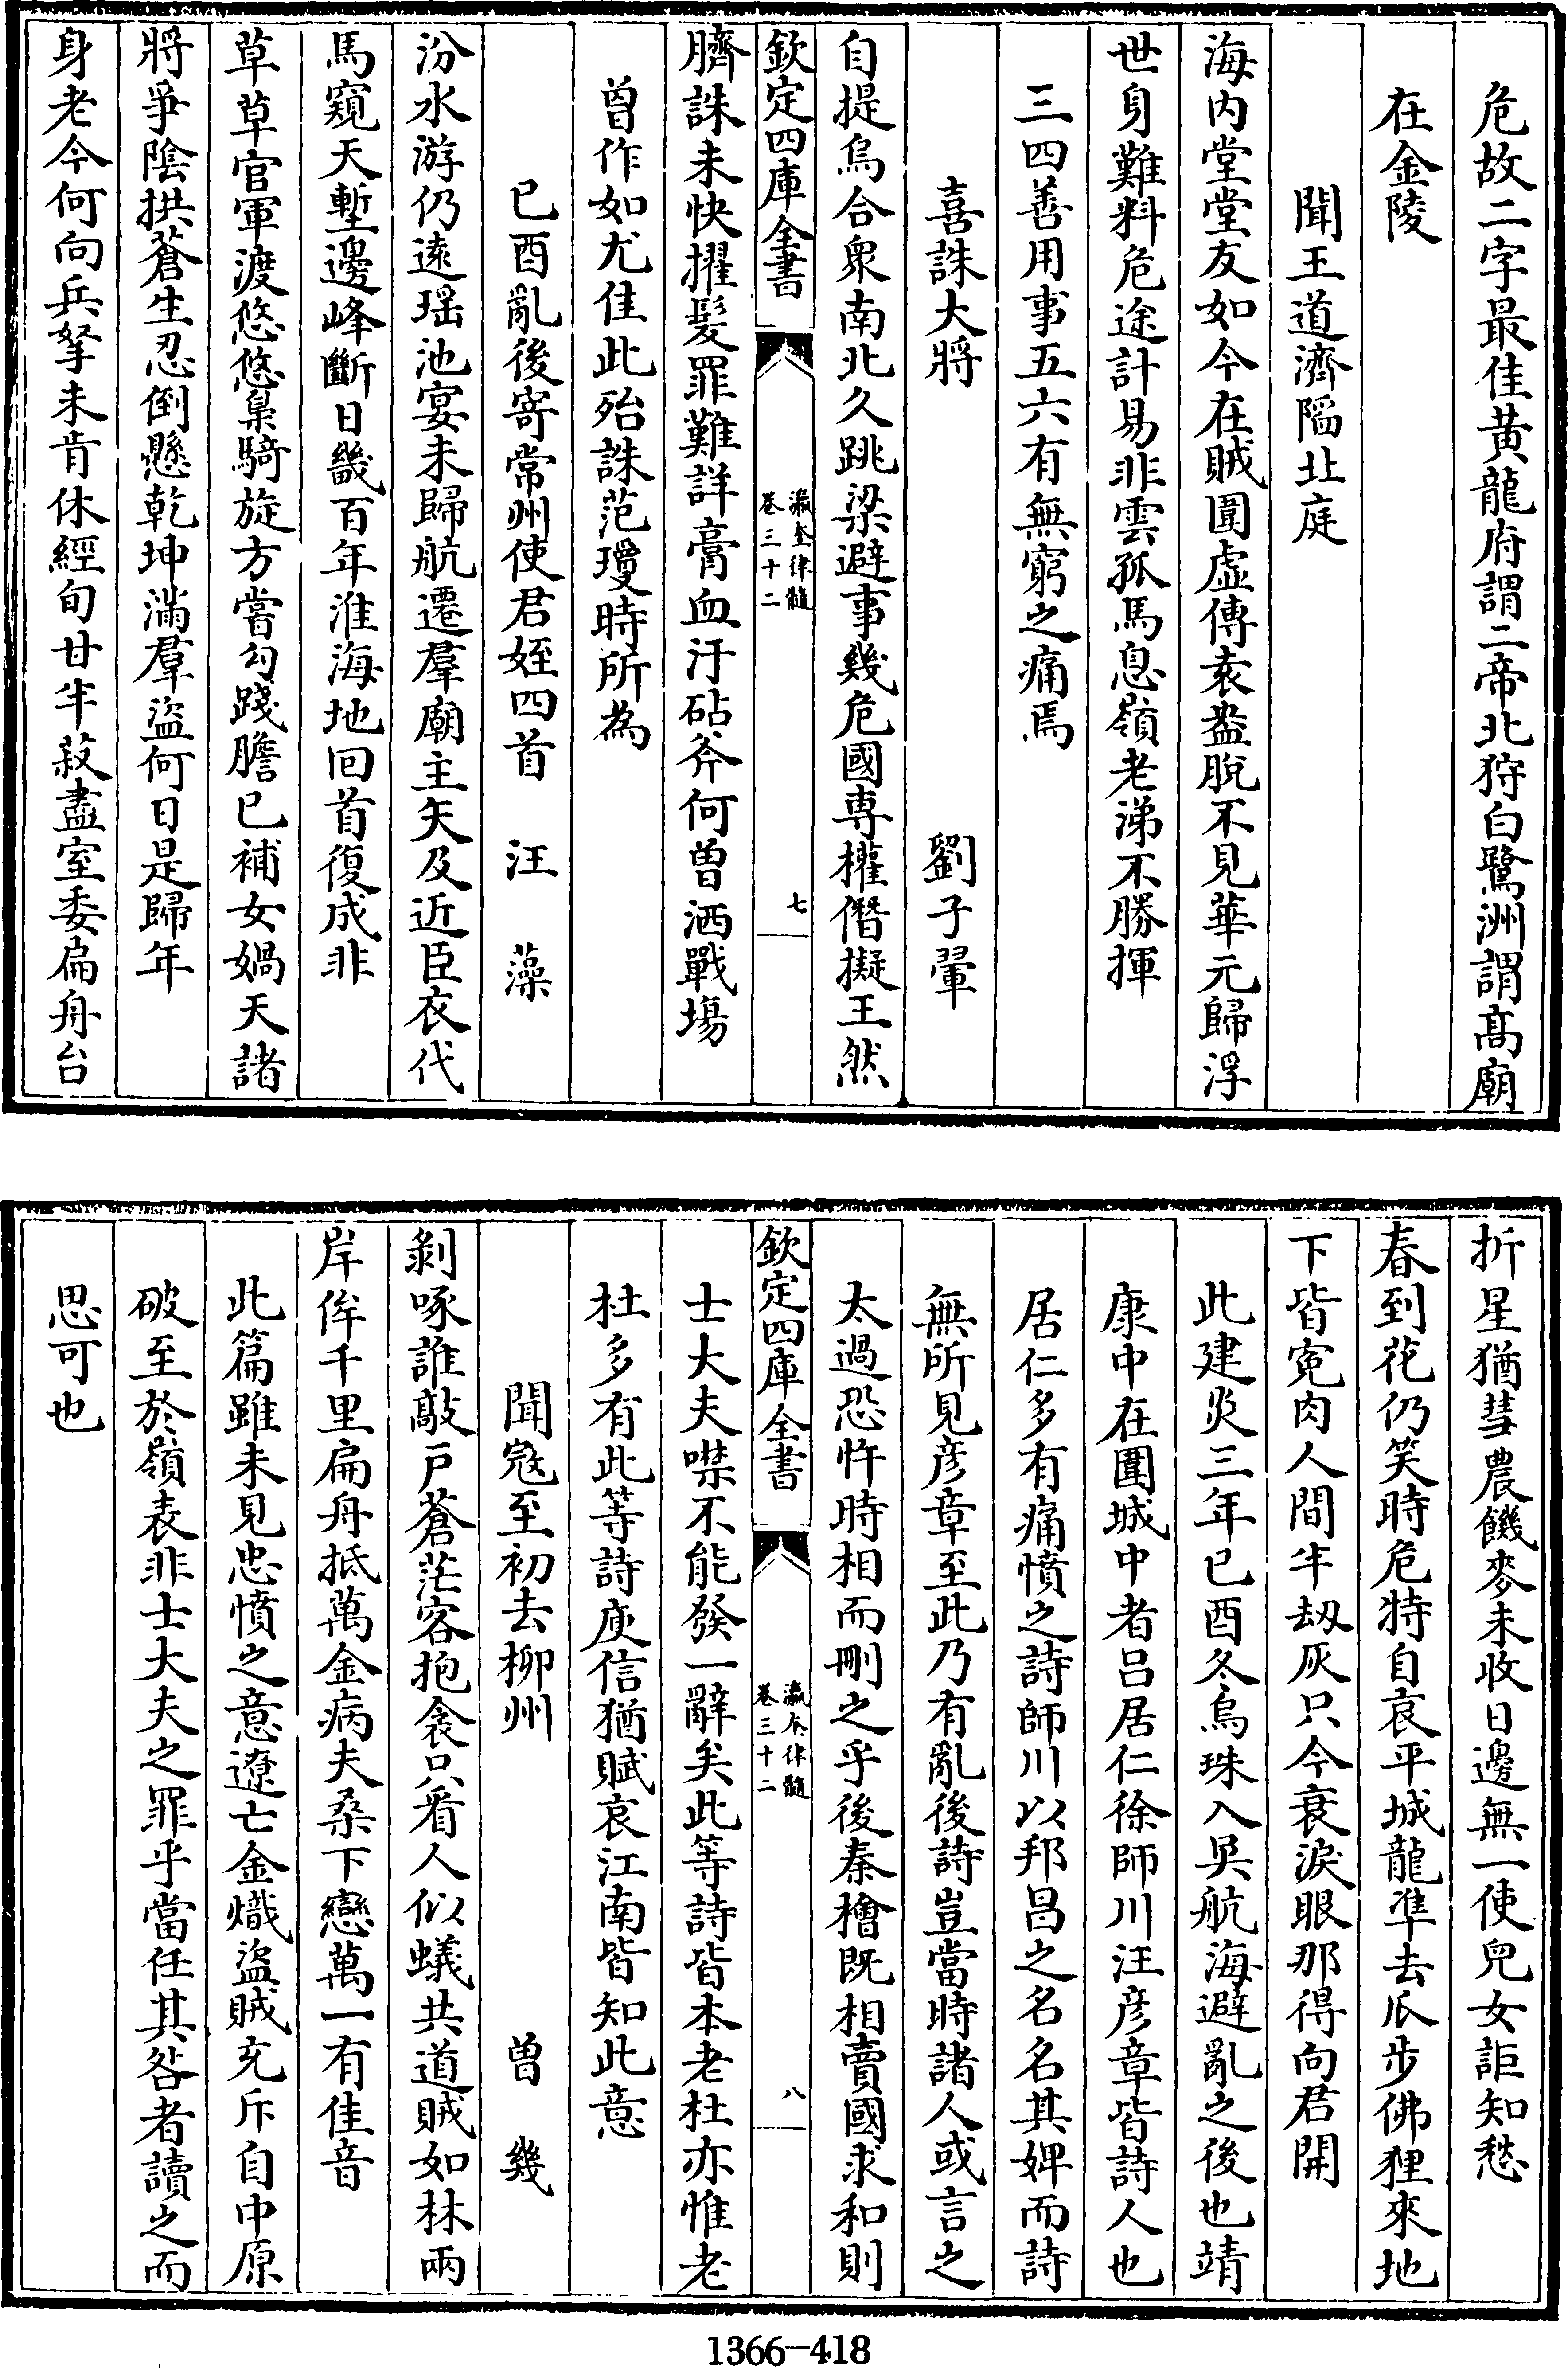 危故二字最佳黃龍府謂二帝北狩白鷺洲謂髙廟
在金陵
聞王道濟陷北庭
海内堂堂友如今在賊圍虚傳袁盎脫不見華元歸浮
世身難料危途計易非雲孤馬息嶺老涕不勝揮
三四善用事五六有無窮之痛焉
喜誅大將　劉子翬
自提烏合衆南北久跳梁避事幾危國專權僭擬王然
臍誅未快擢髮罪難詳膏血汙砧斧何曽洒戰塲
曽作如尤佳此殆誅范瓊時所為
欽定四庫全書
瀛奎律髓
卷三十二
七
已酉亂後寄常州使君姪四首　汪藻
汾水游仍遠瑶池宴未歸航遷羣廟主矢及近臣衣代
馬窺天塹邊峰斷日畿百年淮海地回首復成非
草草官軍渡悠悠梟騎旋方嘗勾踐膽已補女媧天諸
將爭陰拱蒼生忍倒懸乾坤滿羣盜何日是歸年
身老今何向兵拏未肯休經旬甘半菽盡室委扁舟台
折星猶彗農饑麥未收日邊無一使兒女詎知愁
春到花仍笑時危特自哀平城龍凖去瓜步佛狸來地
下皆寃肉人間半刼灰只今衰淚眼那得向君開
此建炎三年已酉冬烏珠入吳航海避亂之後也靖
康中在圍城中者吕居仁徐師川汪彦章皆詩人也
居仁多有痛憤之詩師川以邦昌之名名其婢而詩
無所見彦章至此乃有亂後詩豈當時諸人或言之
太過恐忤時相而刪之乎後秦檜既相賣國求和則
欽定四庫全書
瀛奎律髓
卷三十二
八
士大夫噤不能發一辭矣此等詩皆本老杜亦惟老
杜多有此等詩庾信猶賦哀江南皆知此意
聞寇至初去柳州　曽幾
剝啄誰敲戸蒼茫客抱衾只看人似蟻共道賊如林兩
岸侔千里扁舟抵萬金病夫桑下戀萬一有佳音
此篇雖未見忠憤之意遼亡金熾盜賊充斥自中原
破至於嶺表非士大夫之罪乎當任其咎者讀之而
思可也
1366-418